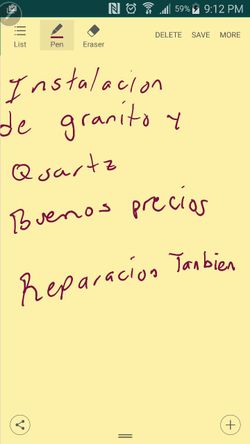 59% 9:12 PM
List Pen Eraser DELETE SAVE MORE
Instalacion
de granito y
Quartz
Buenos precios
Reparacion Tanbien